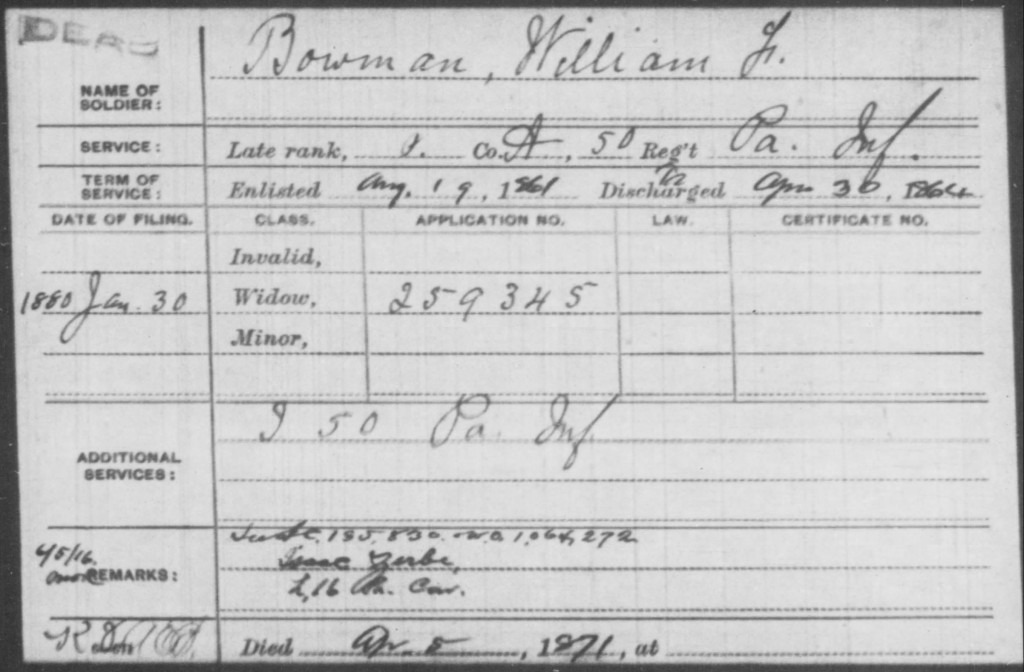 DEAD
Bowman, William F.
NAME OF SOLDIER:
SERVICE: Late rank, P. Co. A, 50 Reg't Pa. Inf.
TERM OF SERVICE: Enlisted Aug. 19, 1861 Discharged Apr. 30, 1864
DATE OF FILING. CLASS. APPLICATION NO. LAW. CERTIFICATE NO.
Invalid,
1880 Jan. 30 Widow, 259345
Minor,
I 50 Pa. Inf
ADDITIONAL SERVICES:
185,830. W.O. 1,064,272
Isaac Zerbe,
4/5/16. REMARKS:
L, 16 Pa. Cav.
Died Apr. 5, 1871, at